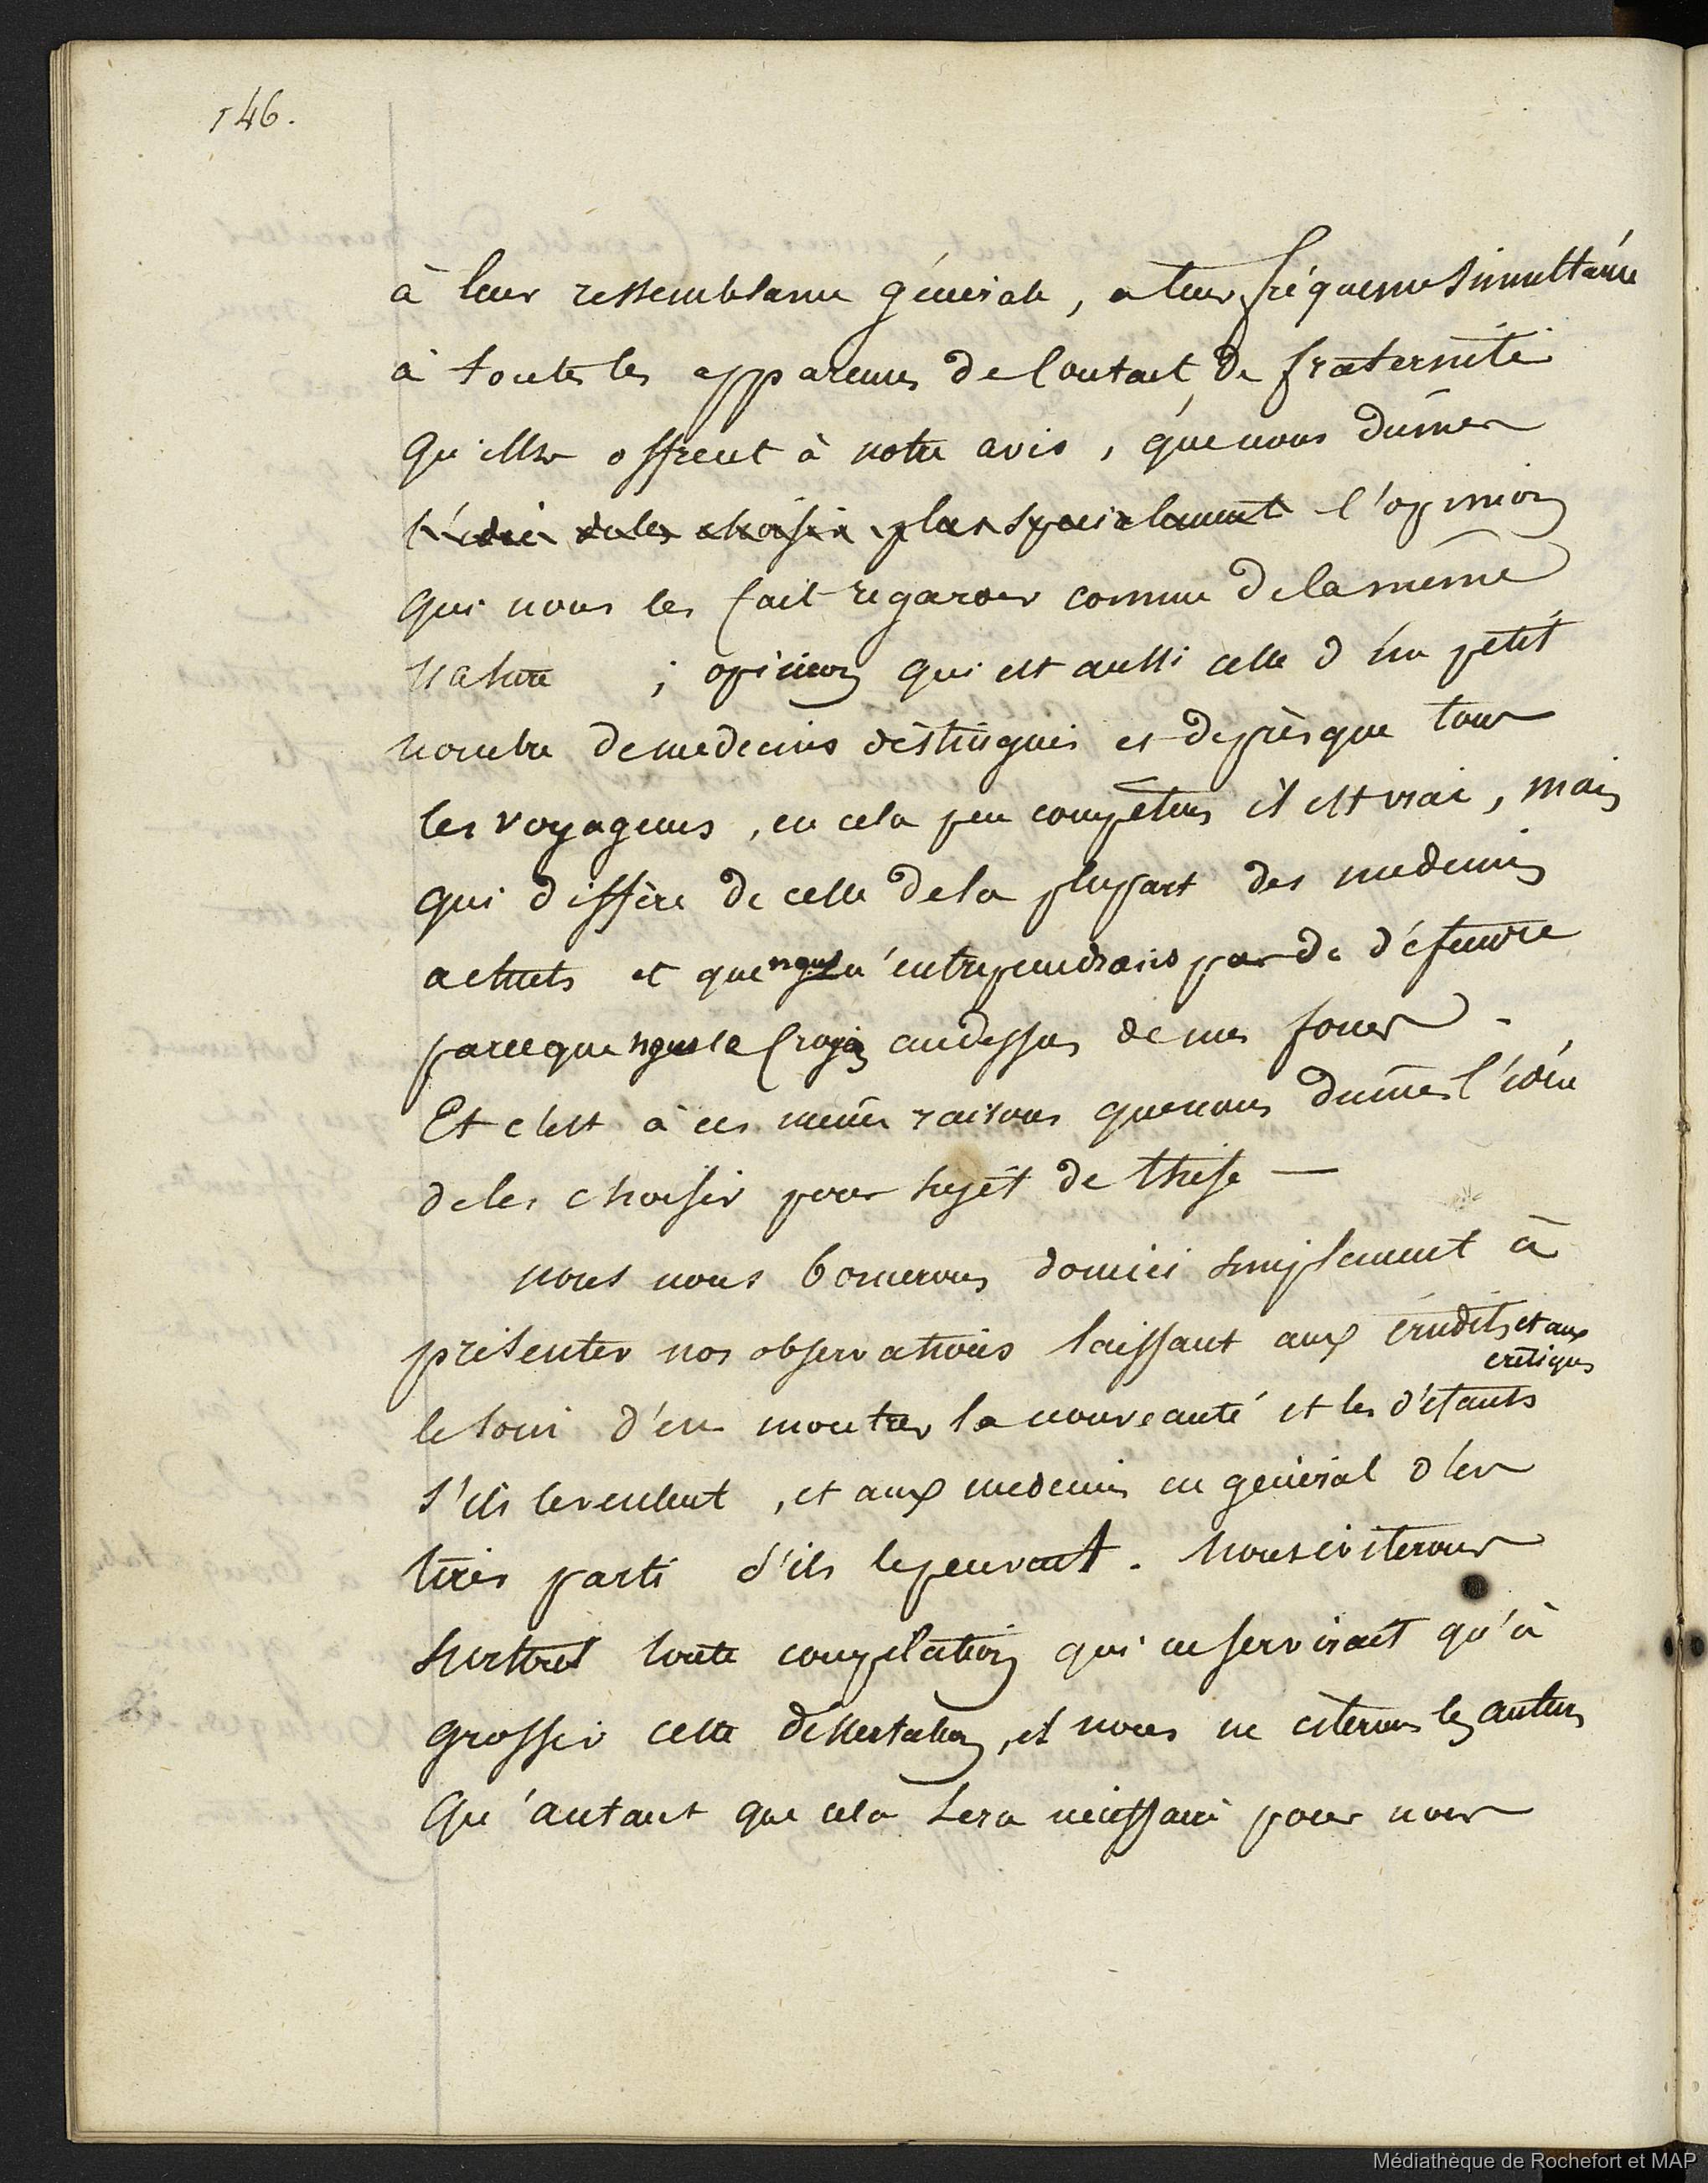 146.
à leur ressemblance générale, a leur fréquence simultanée
à toutes les apparences de contact, de fraternité
qu'elles offrent à notre avis, que nous dûmes
l'idée de les choisir plus specialement l'opinion
qui nous les fait regarder comme de la même
nature ; opinion qui est aussi celle d'un petit
nombre de medecins distingués et de près que tous
les voyageurs, en cela peu compétens il est vrai, mais
qui diffère de celle de la plupart des medecins
actuels et que nous n'entreprendrons pas de défendre
parceque nous le croyons audessus de nos forces.
Et c'est à ces mêmes raisons que nous dumes l'idée
de les choisir pour sujet de thèse —
nous nous bornerons donc ici simplement à
présenter nos observations laissant aux érudits et aux
critiques
le soin d'en montrer la nouveauté et les défauts
s'ils le veulent, et aux medecins en général d'en
tirer parti s'ils le peuvent. Nous éviterons
surtout toute compilation qui ne servirait qu'à
grossir cette dissertation, et nous ne citerons les auteurs
Qu'autant que cela sera nécessaire pour nous
Médiathèque de Rochefort et MAP